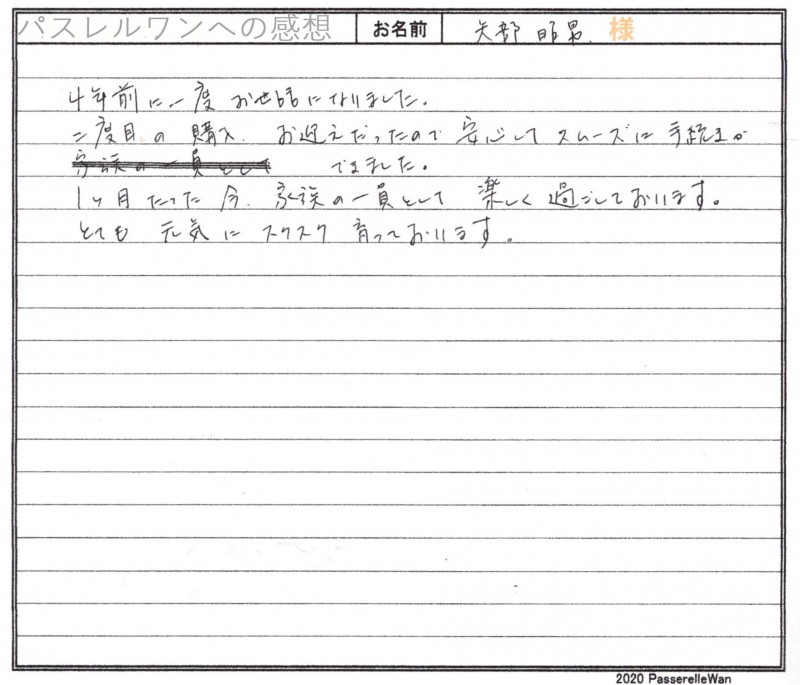 パスレルワンへの感想 お名前 矢部 昭男 様
4年前に一度 お世話になりました。
二度目の 購入、お迎えだったので 安心して スムーズに 手続きが
家族の一員として できました。
1ヶ月たった今、家族の一員として 楽しく 過ごしております。
とても 元気に スクスク 育っております。
2020 PasserelleWan